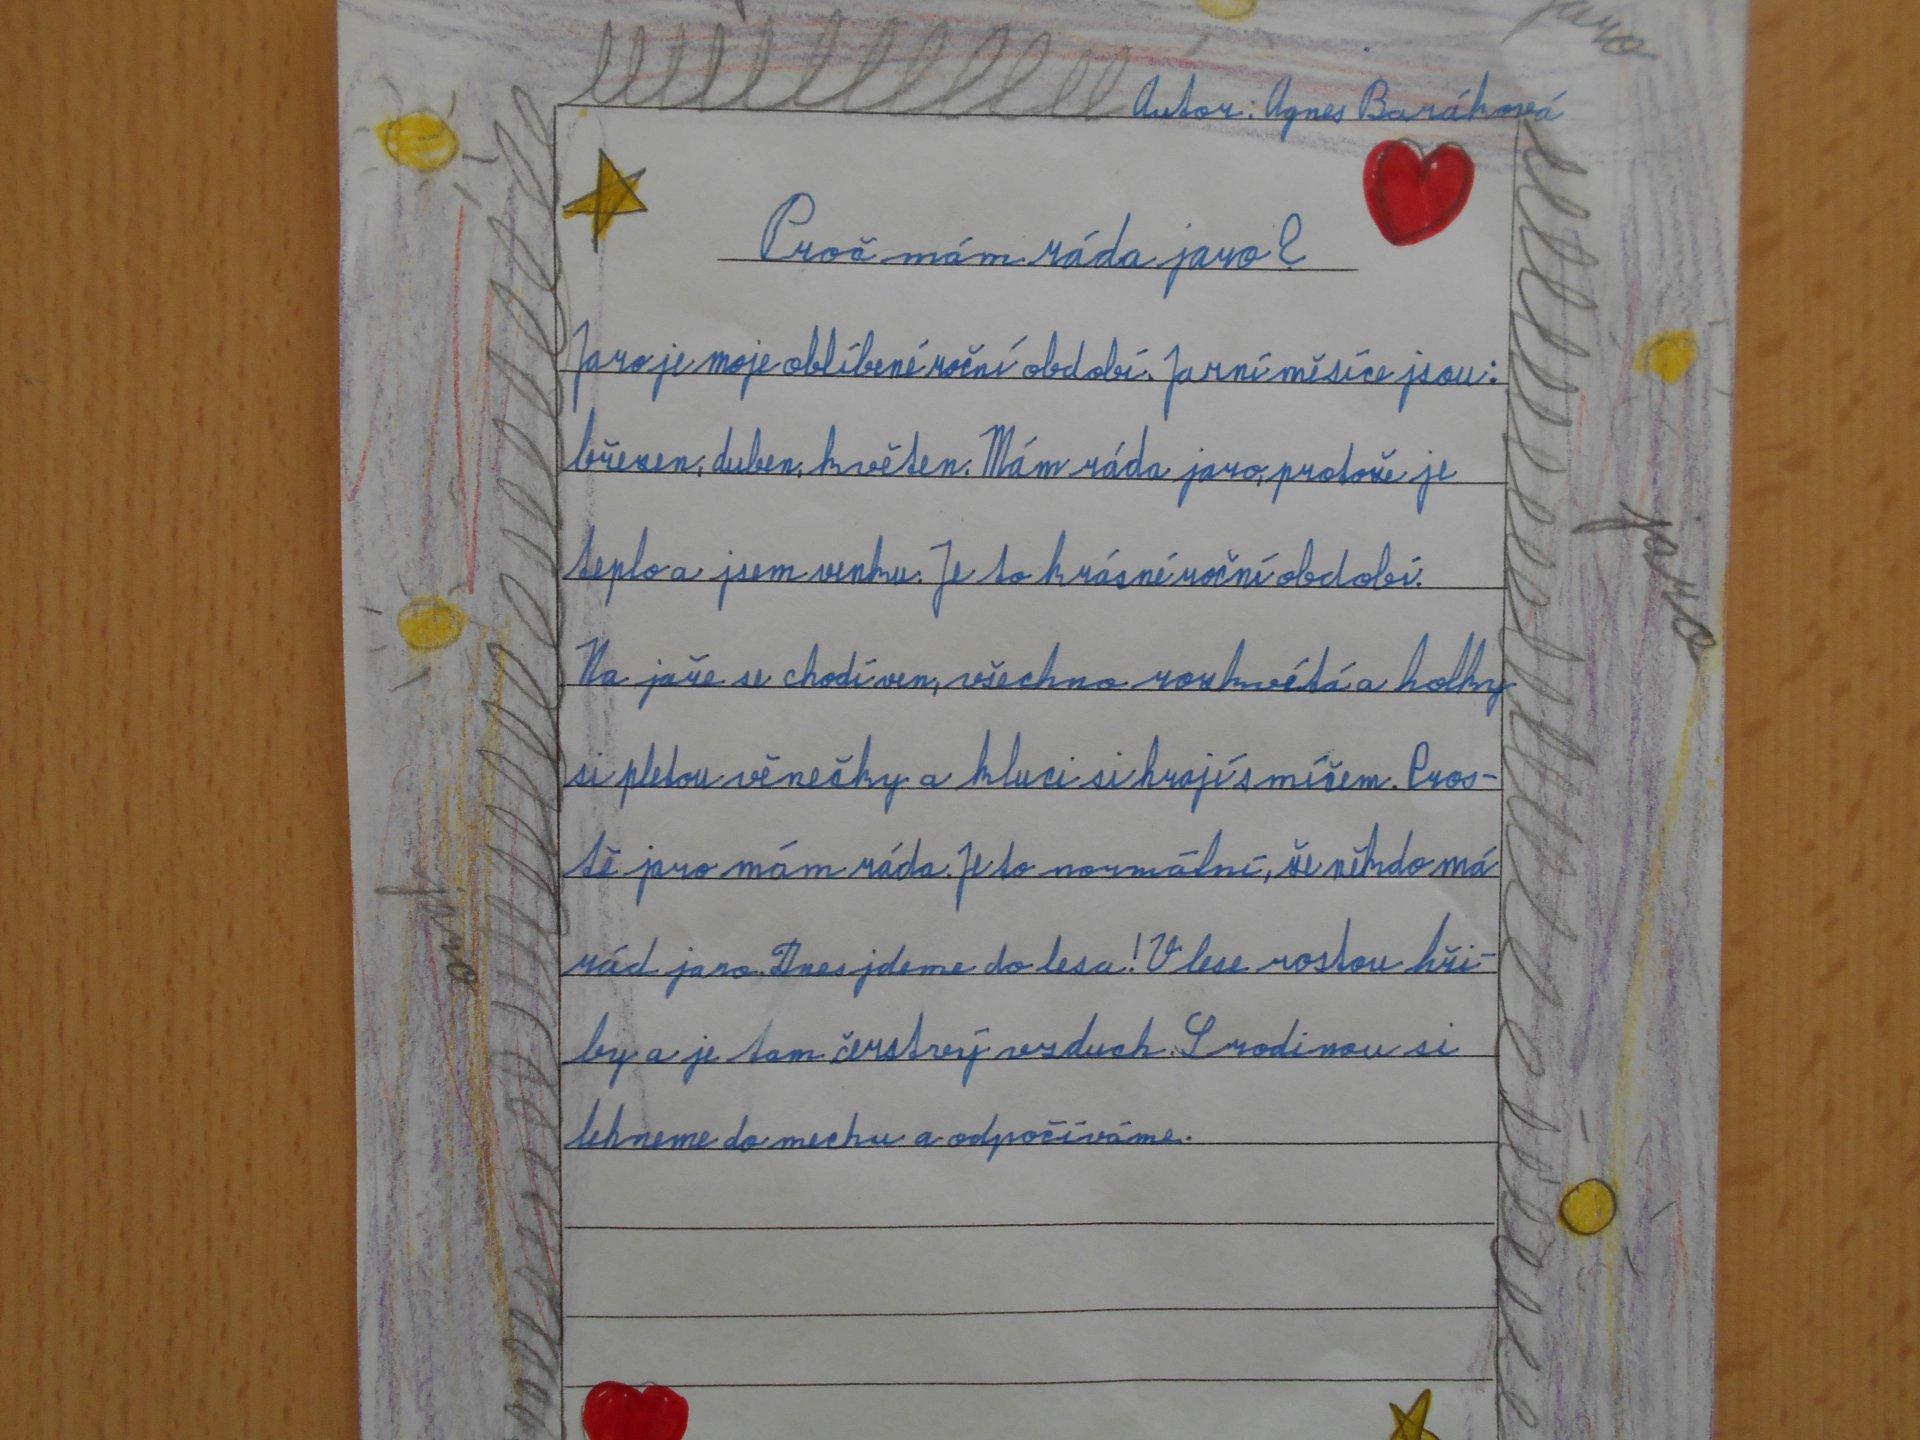 jaro
Autor: Agnes Baráková
Proč mám ráda jaro?
Jaro je moje oblíbené roční období. Jarní měsíce jsou:
březen, duben, květen. Mám ráda jaro, protože je
teplo a jsem venku. Je to krásné roční období.
Na jaře se chodí ven, všechno rozkvétá a holky
si pletou věnečky a kluci si hrají s míčem. Pros-
tě jaro mám ráda. Je to normální, že někdo má
rád jaro. Dnes jdeme do lesa! V lese rostou hři-
by a je tam čerstvý vzduch. S rodinou si
lehneme do mechu a odpočíváme.
jaro
jaro